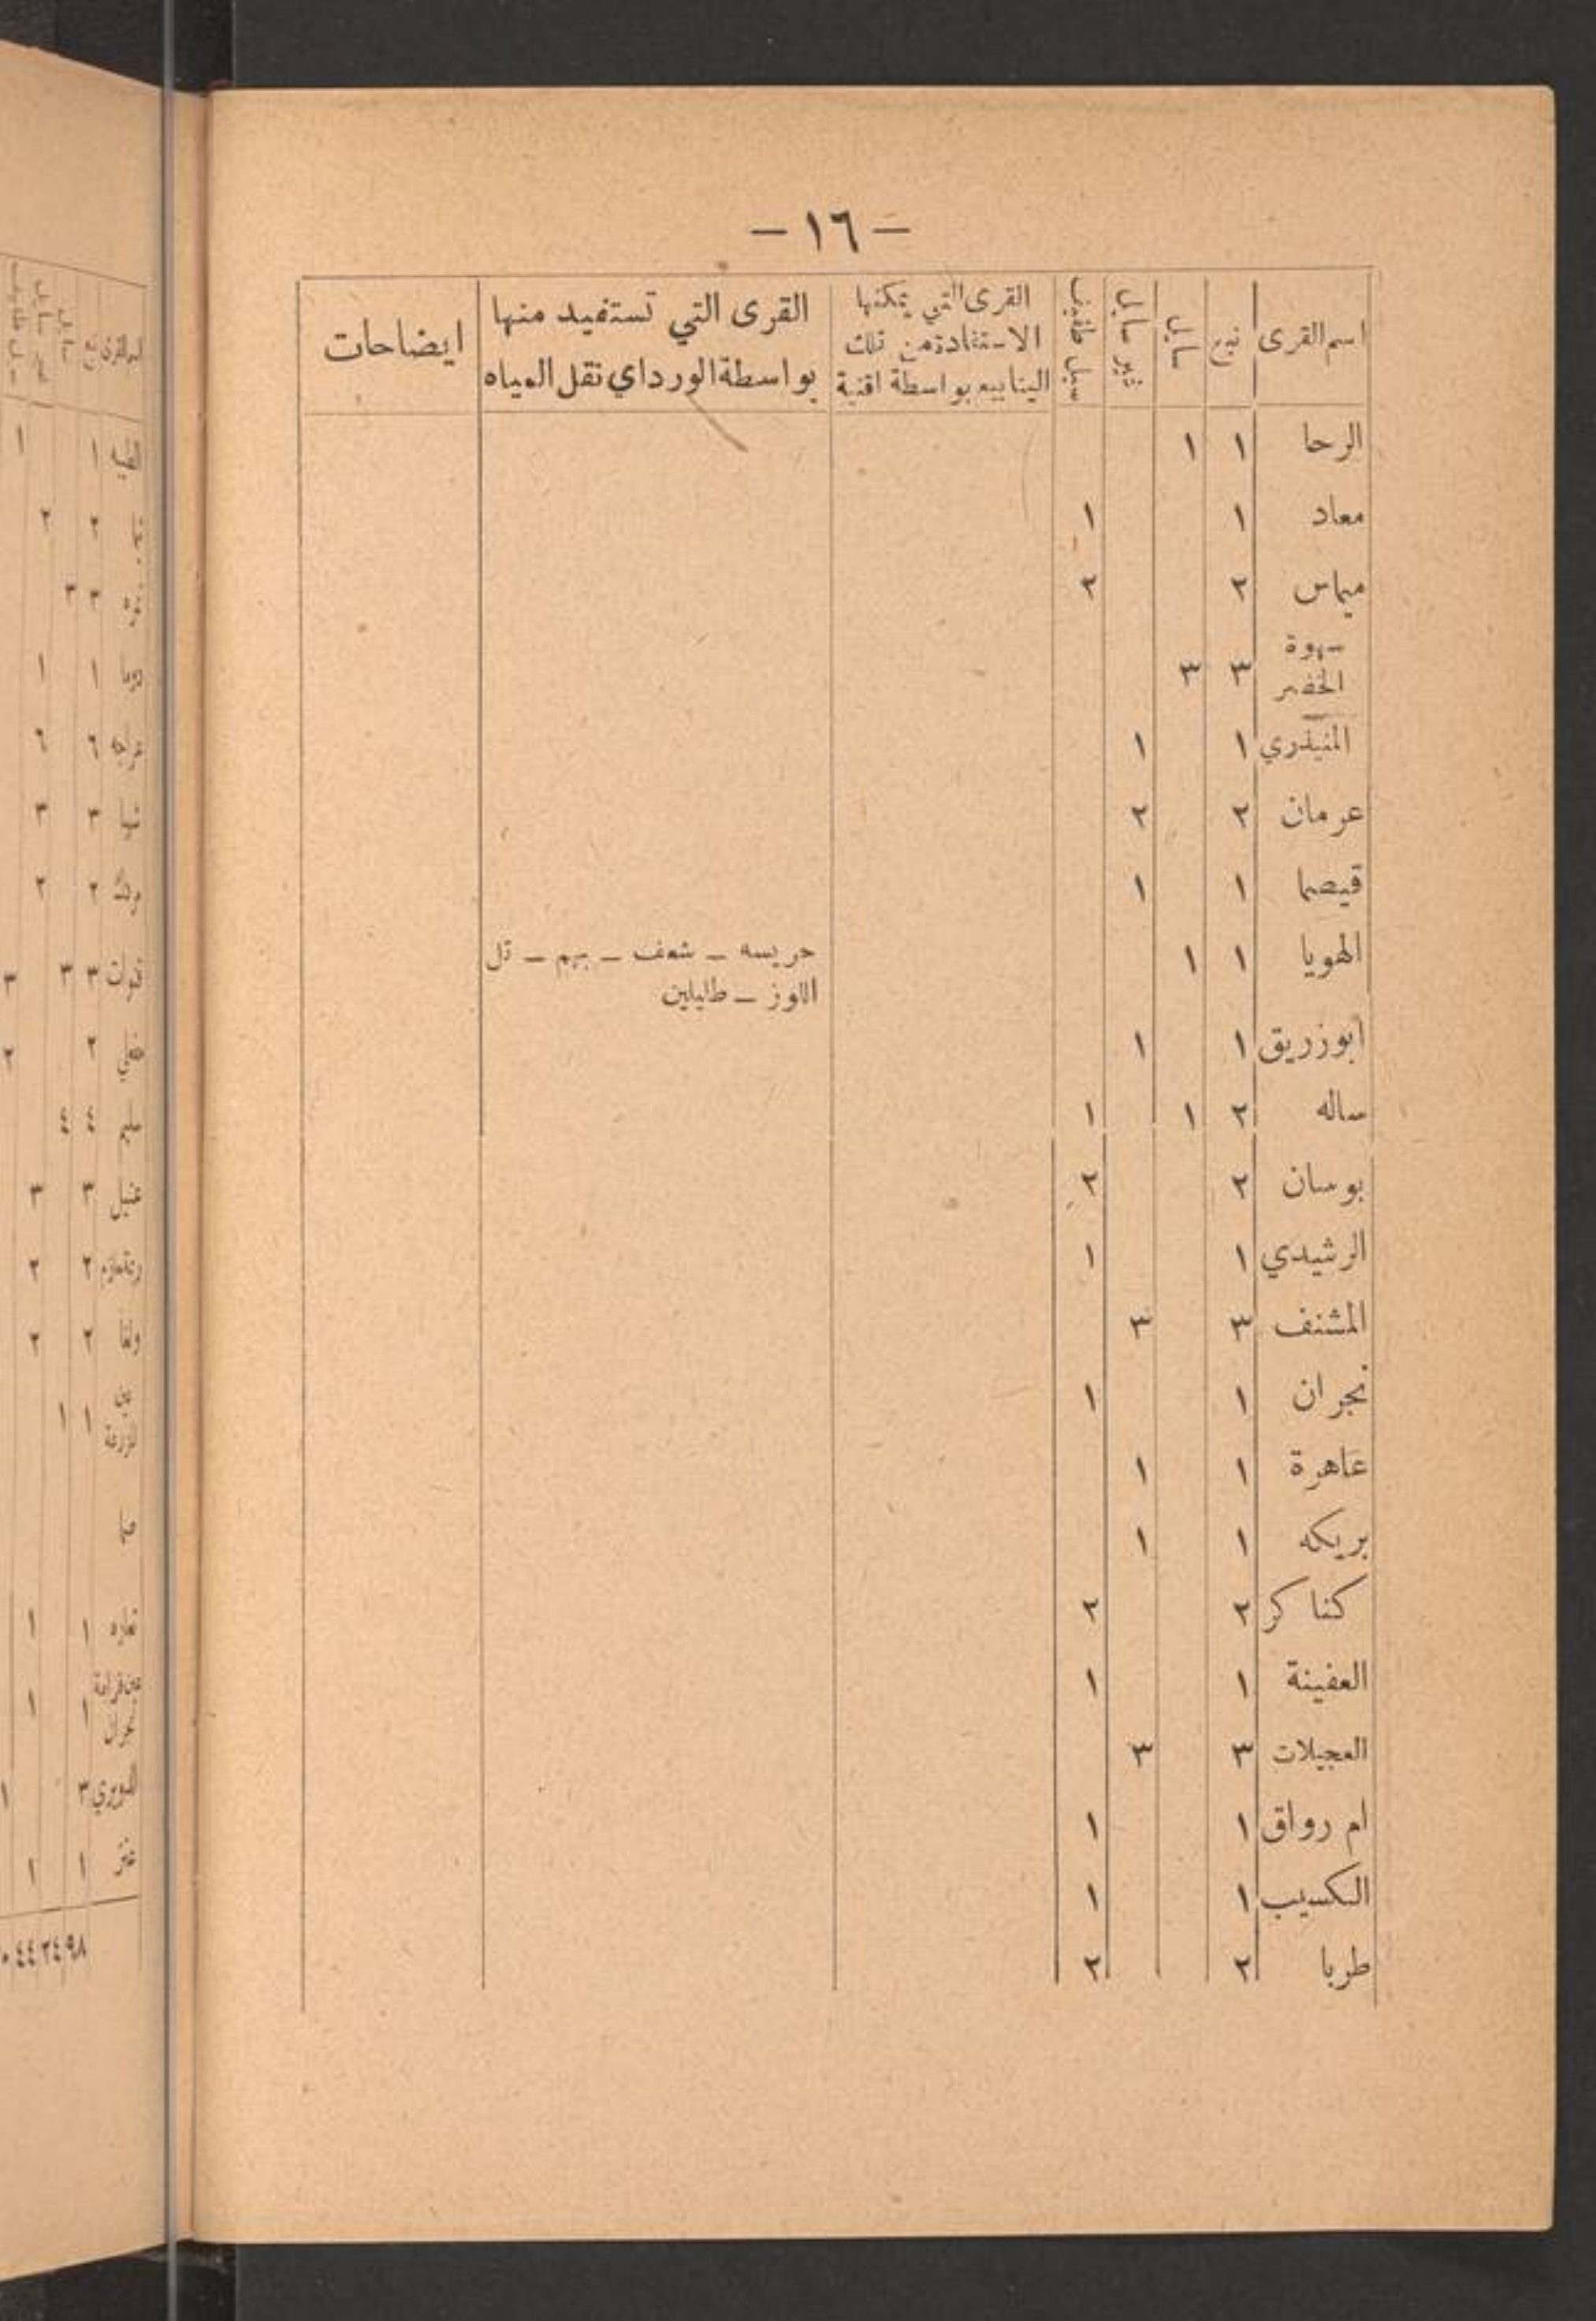 — ١٦ —
اسم القرى | نبع | سايل | غير سايل | سيل طفيف | القرى التي يمكنها الاستفادة من تلك الينابيع بواسطة اقنية | القرى التي تستفيد منها بواسطة الورد اي نقل المياه | ايضاحات
الرحا ١ ١
معاد ١ ١
مياس ٢ ٢
سهوة
الخضر ٣ ٣
المنيذري ١ ١
عرمان ٢ ٢
قيصما ١ ١
الهويا ١ ١ حريسه — شعف — بهم — تل
اللوز — طليلين
ابوزريق ١ ١
ساله ٢ ١ ١
بوسان ٢ ٢
الرشيدي ١ ١
المشنف ٣ ٣
نجران ١ ١
عاهرة ١ ١
بريكه ١ ١
كناكر ٢ ٢
العفينة ١ ١
العجيلات ٣ ٣
ام رواق ١ ١
الكسيب ١ ١
طربا ٢ ٢